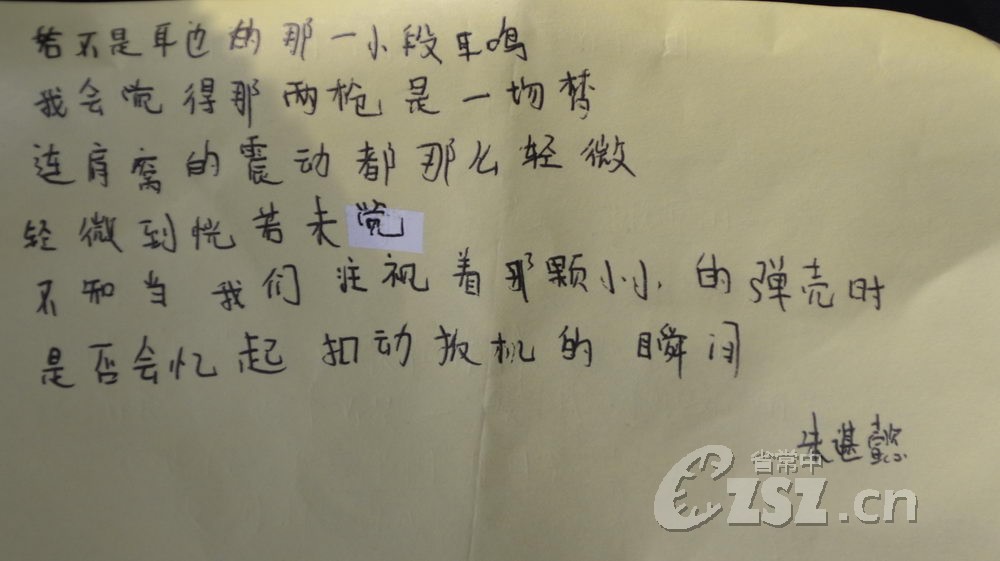 若不是耳边的那一小段耳鸣
我会觉得那两枪是一场梦
连肩窝的震动都那么轻微
轻微到恍若未觉
不知当我们注视着那颗小小的弹壳时
是否会忆起扣动扳机的瞬间
朱谌
省常中
CZSZ.cn